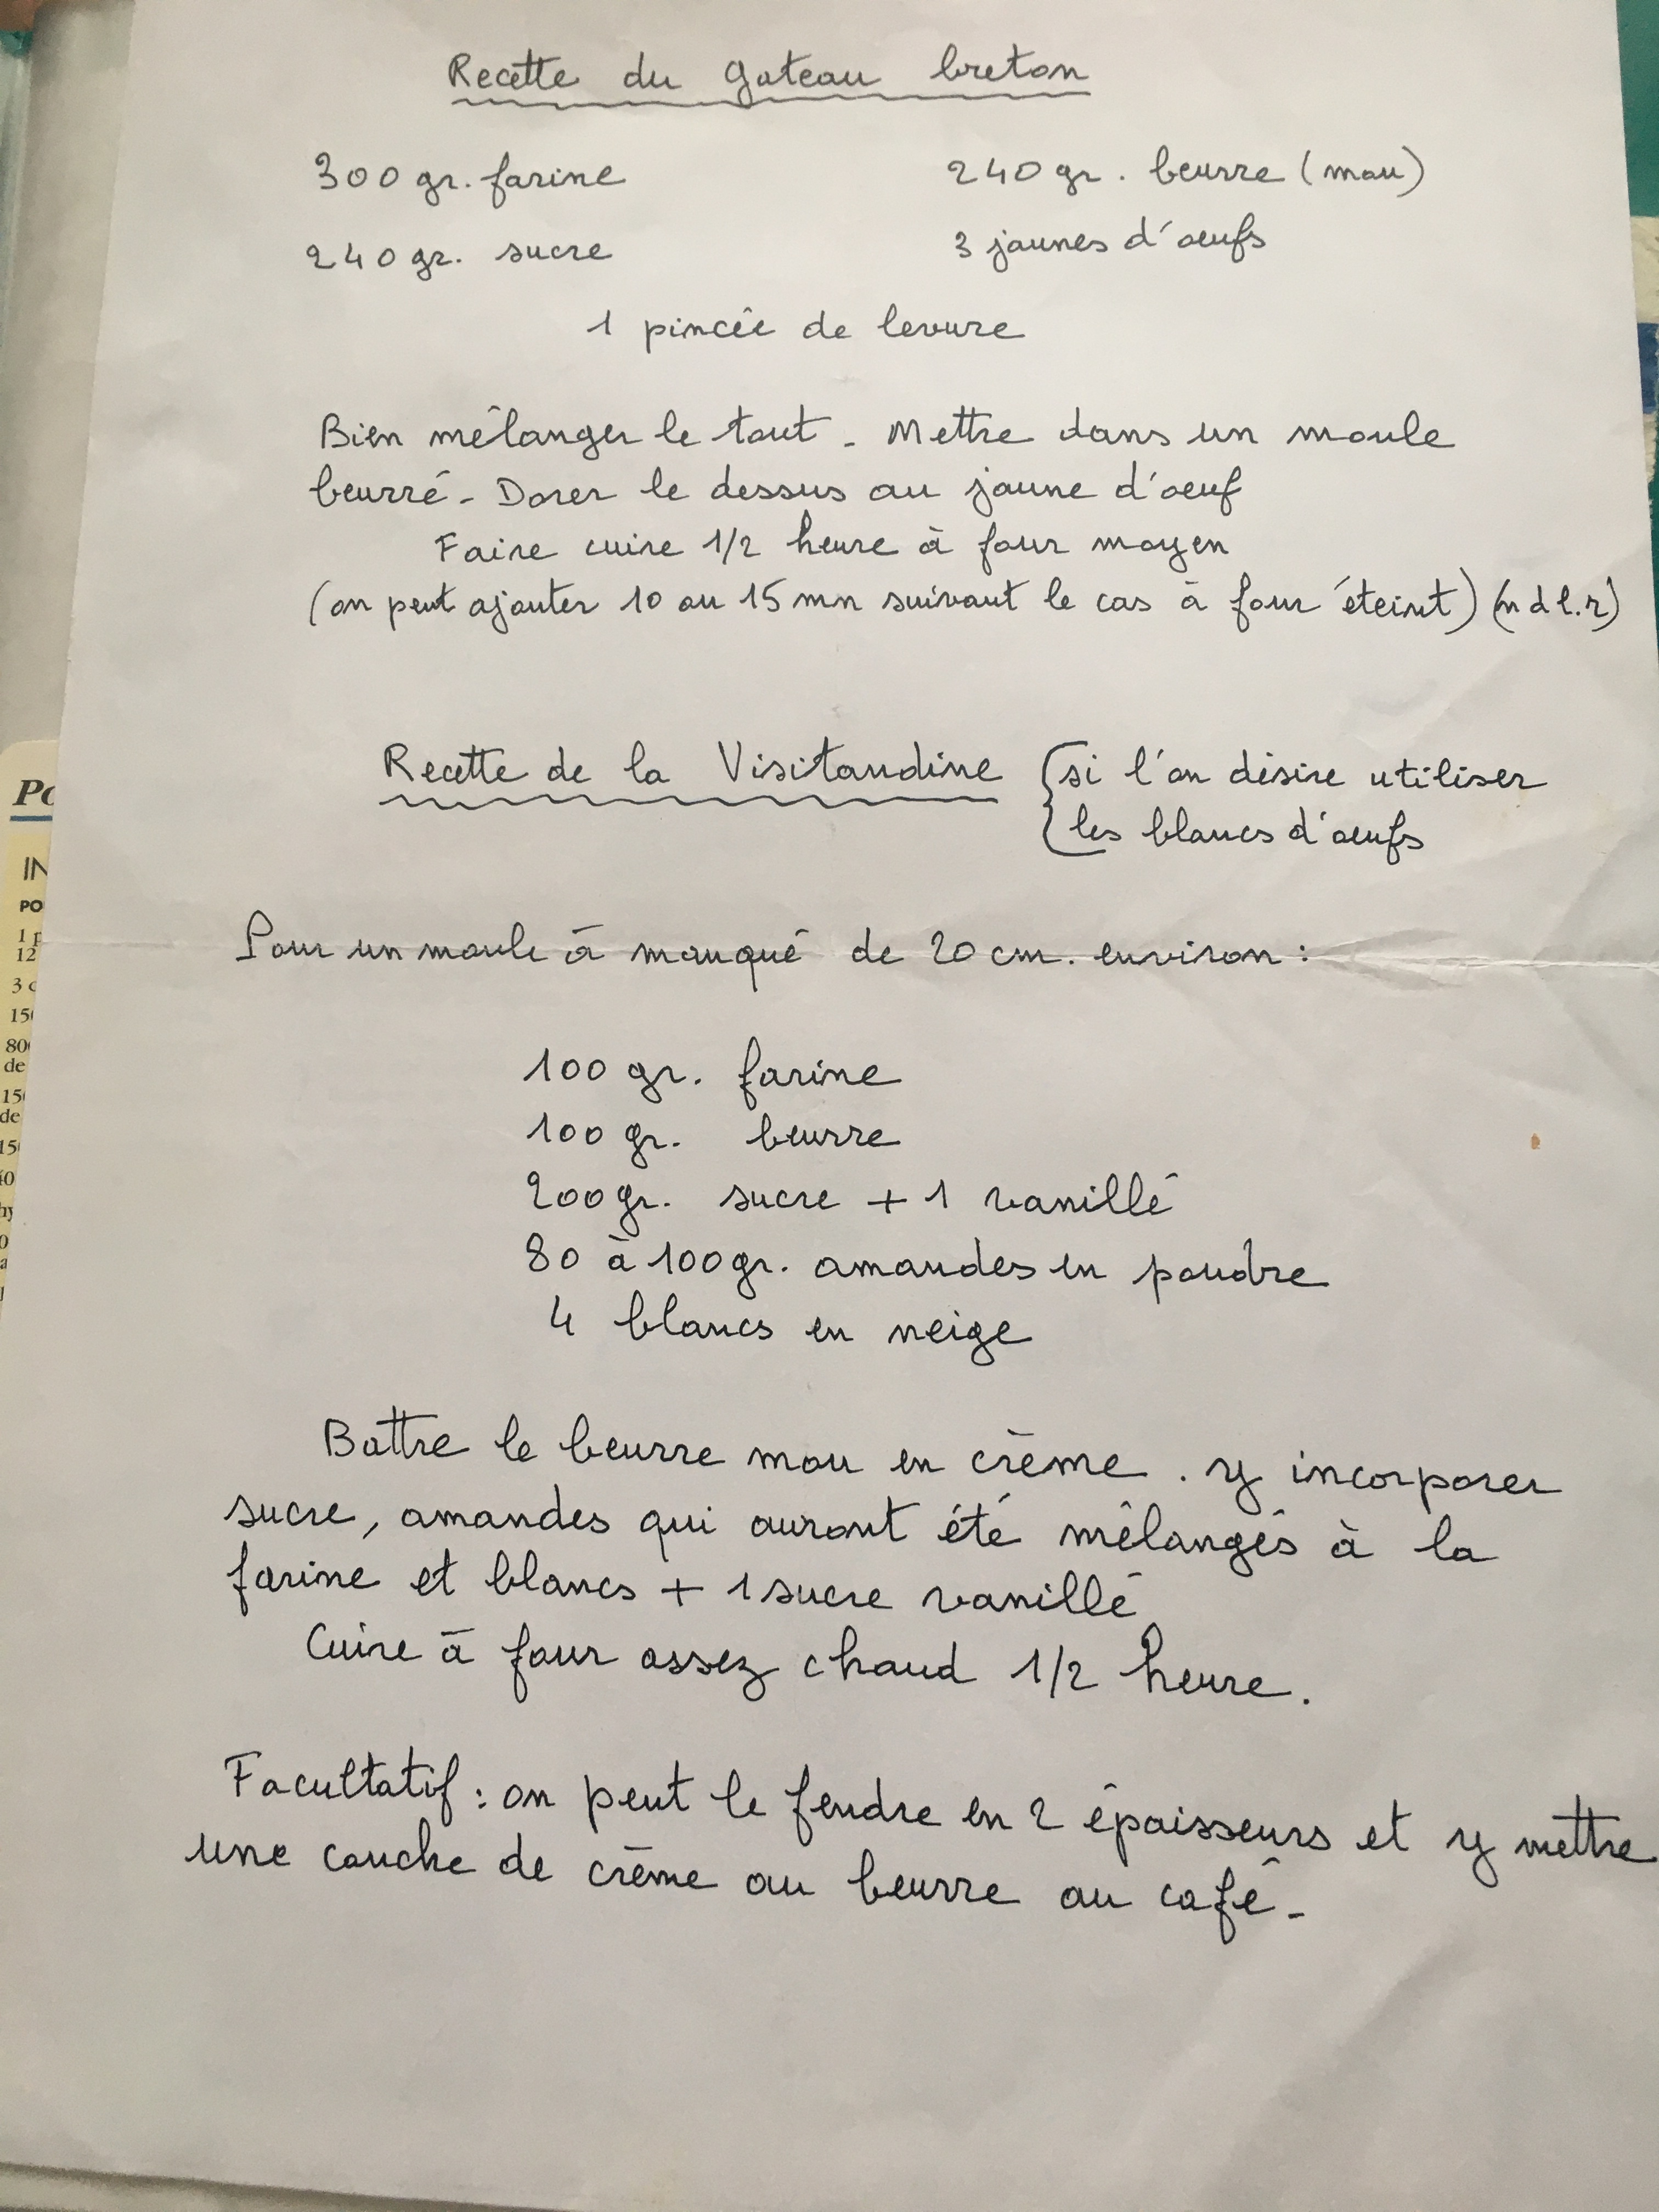 Recette du gateau breton
300 gr. farine 240 gr. beurre (mou)
240 gr. sucre 3 jaunes d'oeufs
1 pincée de levure
Bien mélanger le tout - Mettre dans un moule
beurré - Dorer le dessus au jaune d'oeuf
Faire cuire 1/2 heure à four moyen
(on peut ajouter 10 ou 15 mn suivant le cas à four éteint) (n d l.r)
Recette de la Visitandine { si l'on désire utiliser
les blancs d'oeufs
Pour un moule à manqué de 20 cm. environ :
100 gr. farine
100 gr. beurre
200 gr. sucre + 1 vanillé
80 à 100 gr. amandes en poudre
4 blancs en neige
Battre le beurre mou en crème. y incorporer
sucre, amandes qui auront été mélangés à la
farine et blancs + 1 sucre vanillé
Cuire à four assez chaud 1/2 heure.
Facultatif : on peut le fendre en 2 épaisseurs et y mettre
une couche de crème au beurre au café -
IN
PO
12
3 c
de
de